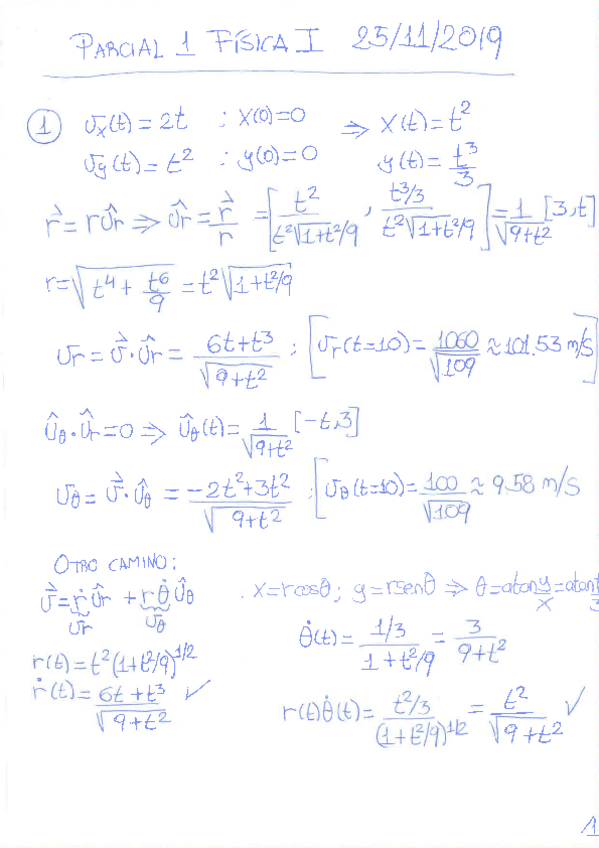 PARCIAL 1 FÍSICA I 25/11/2019
① vx(t) = 2t ; x(0)=0 ⇒ x(t) = t²
vy(t) = t² ; y(0)=0 y(t) = t³/3
r⃗ = r ûr ⇒ ûr = r⃗/r = [t²/(t²√(1+t²/9)), (t³/3)/(t²√(1+t²/9))] = 1/√(9+t²) [3,t]
r = √(t⁴ + t⁶/9) = t²√(1+t²/9)
vr = v⃗·ûr = (6t+t³)/√(9+t²) ; [vr(t=10) = 1060/√109 ≈ 101.53 m/s]
ûθ·ûr = 0 ⇒ ûθ(t) = 1/√(9+t²) [-t,3]
vθ = v⃗·ûθ = (-2t²+3t²)/√(9+t²) ; [vθ(t=10) = 100/√109 ≈ 9.58 m/s
OTRO CAMINO:
v⃗ = ṙ ûr + r θ̇ ûθ . x = r cosθ ; y = r senθ ⇒ θ = atan y/x = atan t/3
vr vθ
θ̇(t) = (1/3)/(1+t²/9) = 3/(9+t²)
r(t) = t²(1+t²/9)^1/2
ṙ(t) = (6t+t³)/√(9+t²) ✓
r(t)θ̇(t) = (t²/3)/(1+t²/9)^1/2 = t²/√(9+t²) ✓
1